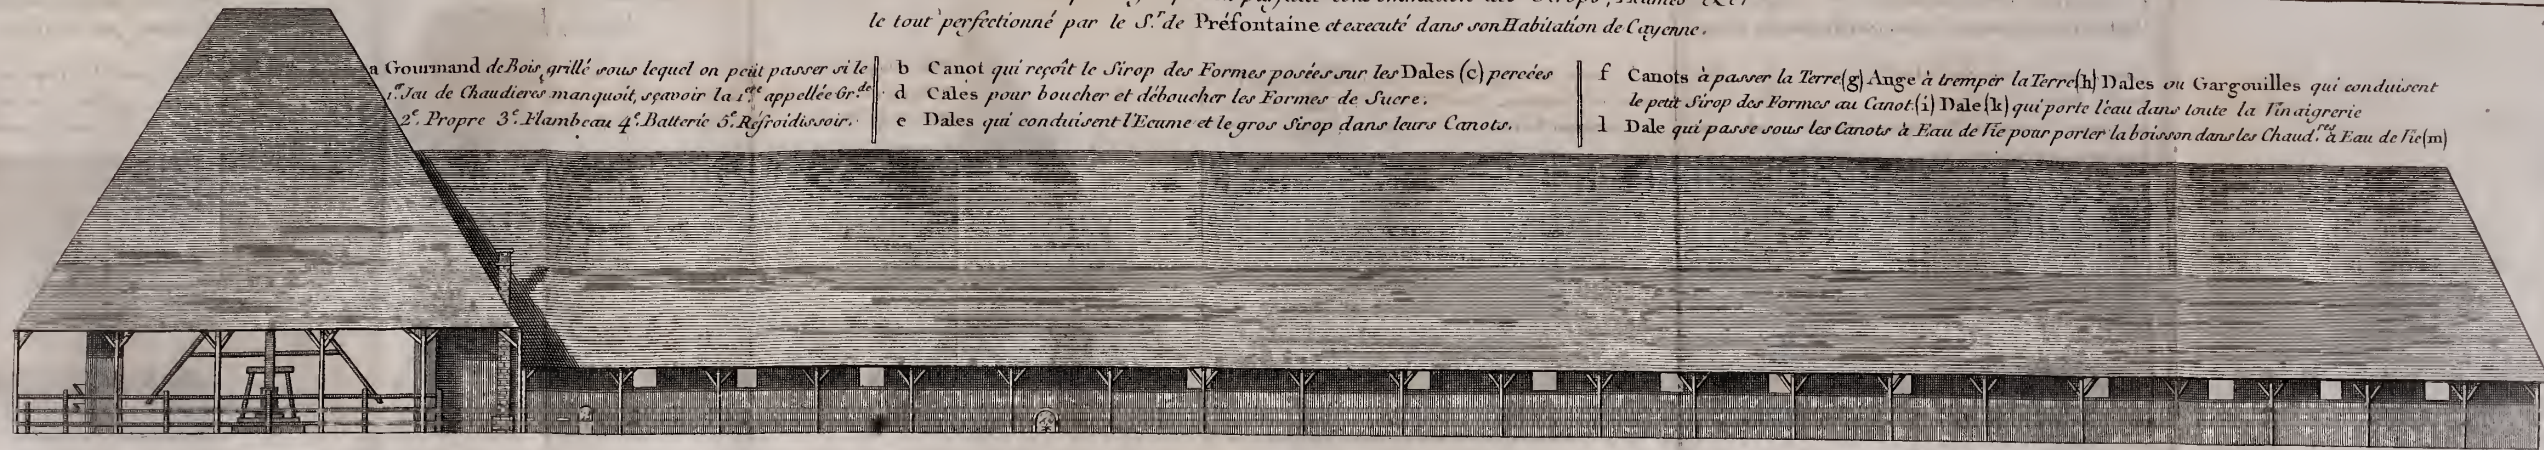 le tout perfectionné par le S.r de Préfontaine et executé dans son Habitation de Cayenne.
a Gourmand de Bois grillé sous lequel on peut passer si le
1.er Jeu de Chaudieres manquoit, sçavoir la 1.ere appellée Gr.de
2.e Propre 3.e Flambeau 4.e Batterie 5.e Refroidissoir.
b Canot qui reçoît le Sirop des Formes posées sur les Dales (c) percées
d Cales pour boucher et déboucher les Formes de Sucre.
e Dales qui conduisent l'Ecume et le gros Sirop dans leurs Canots.
f Canots à passer la Terre (g) Ange à tremper la Terre (h) Dales ou Gargouilles qui conduisent
le petit Sirop des Formes au Canot (i) Dale (k) qui porte l'eau dans toute la Vinaigrerie
l Dale qui passe sous les Canots à Eau de Vie pour porter la boisson dans les Chaud.res à Eau de Vie (m)